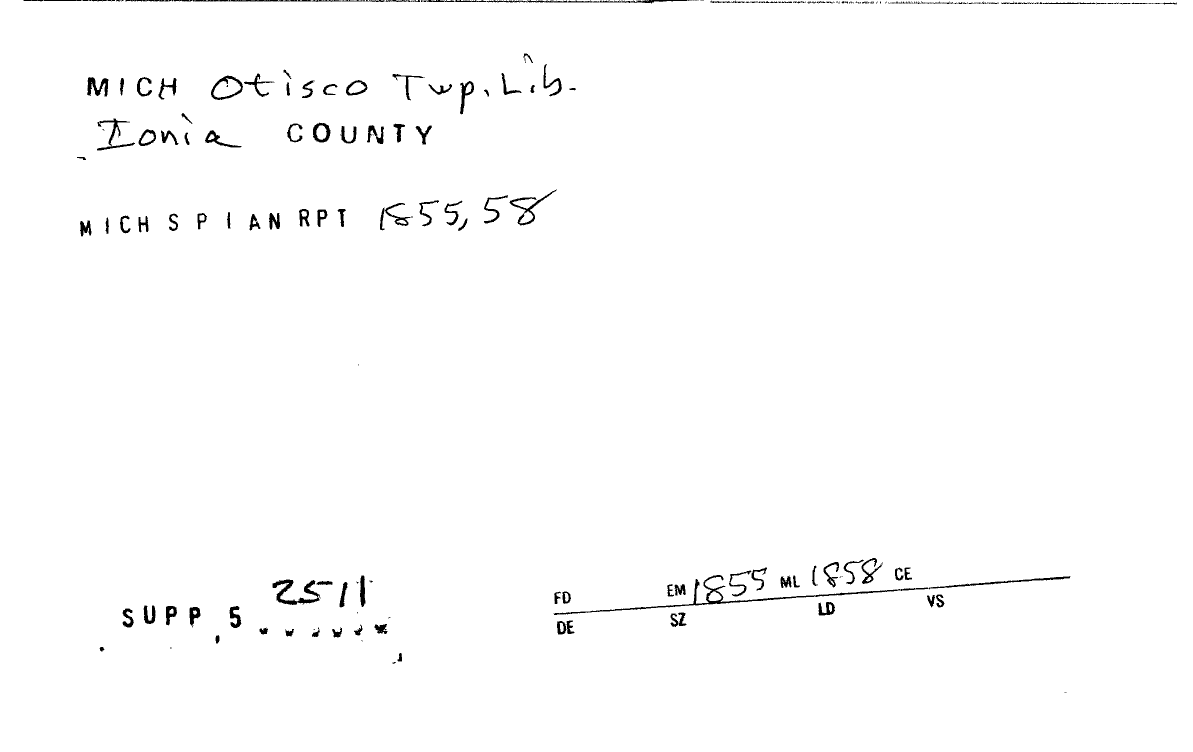 MICH Otisco Twp. Lib.
Ionia COUNTY
MICH S P I AN RPT 1855, 58
2511
SUPP 5
FD EM 1855 ML 1858 CE
DE SZ LD VS